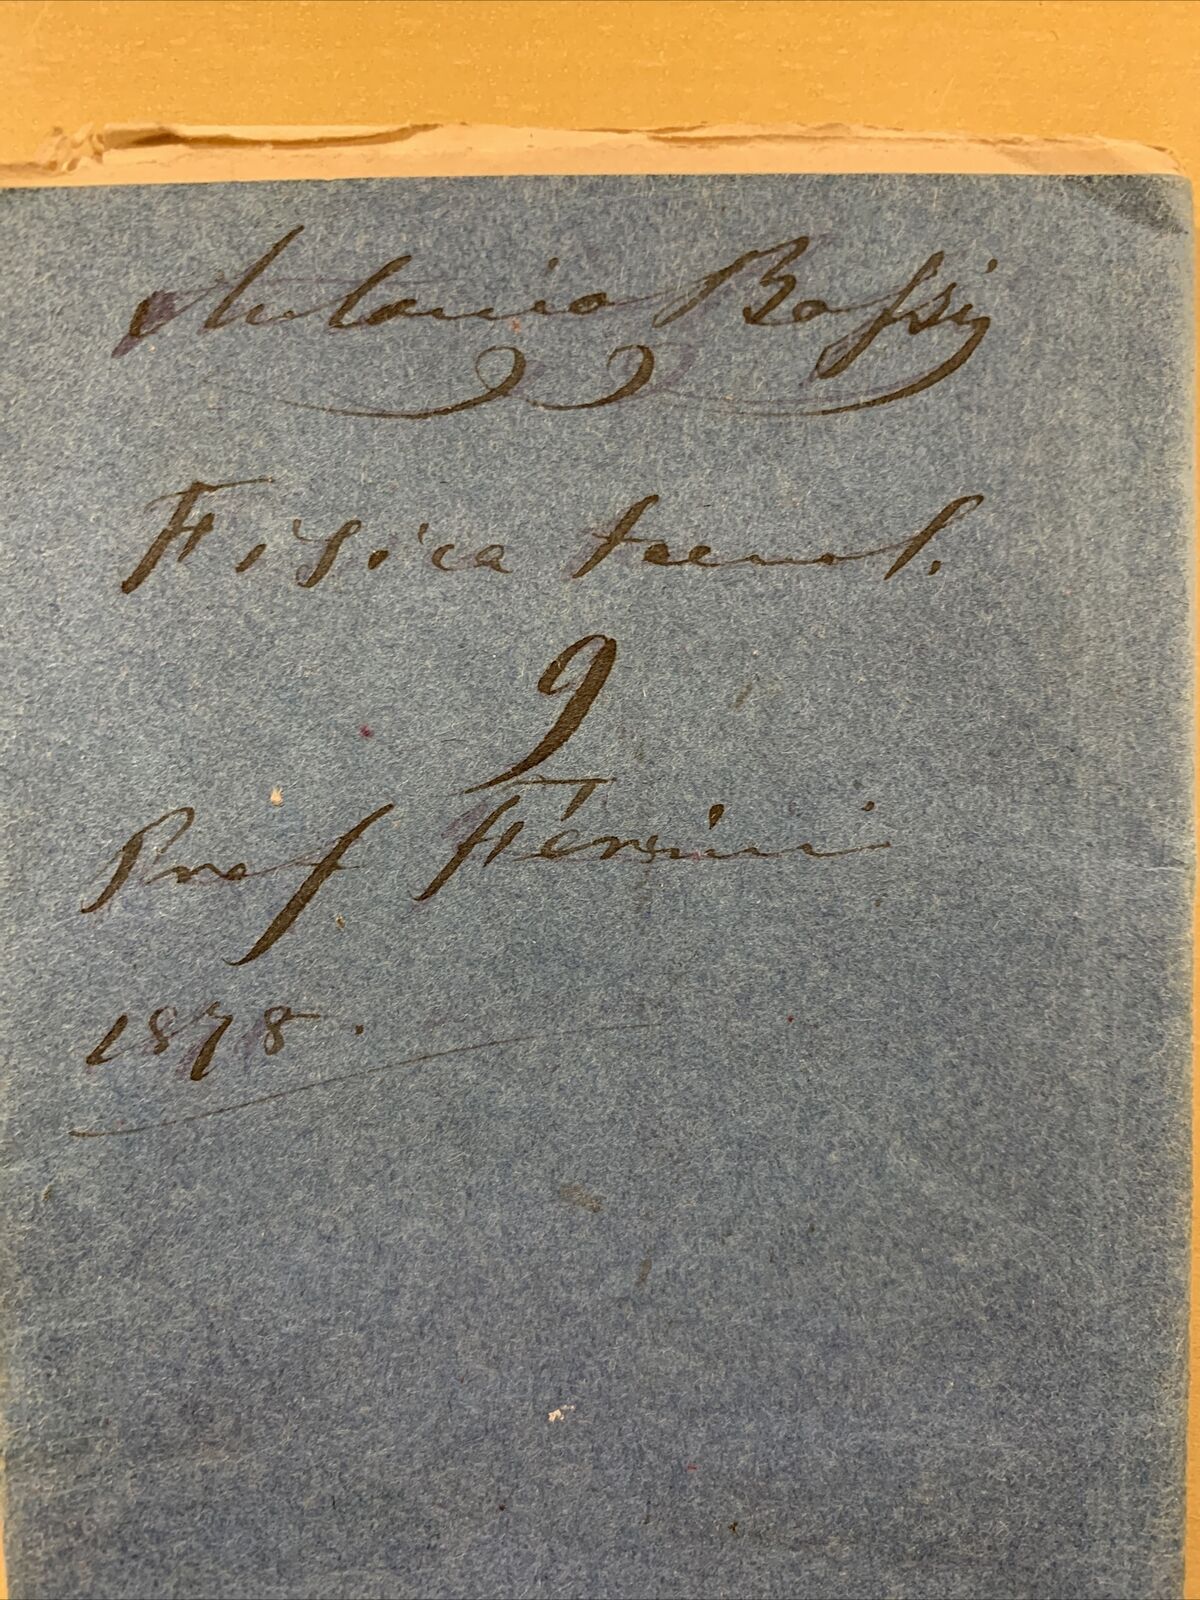 Antonio Bassi
Fisica tecnol.
9
Prof Ferrini
1878.